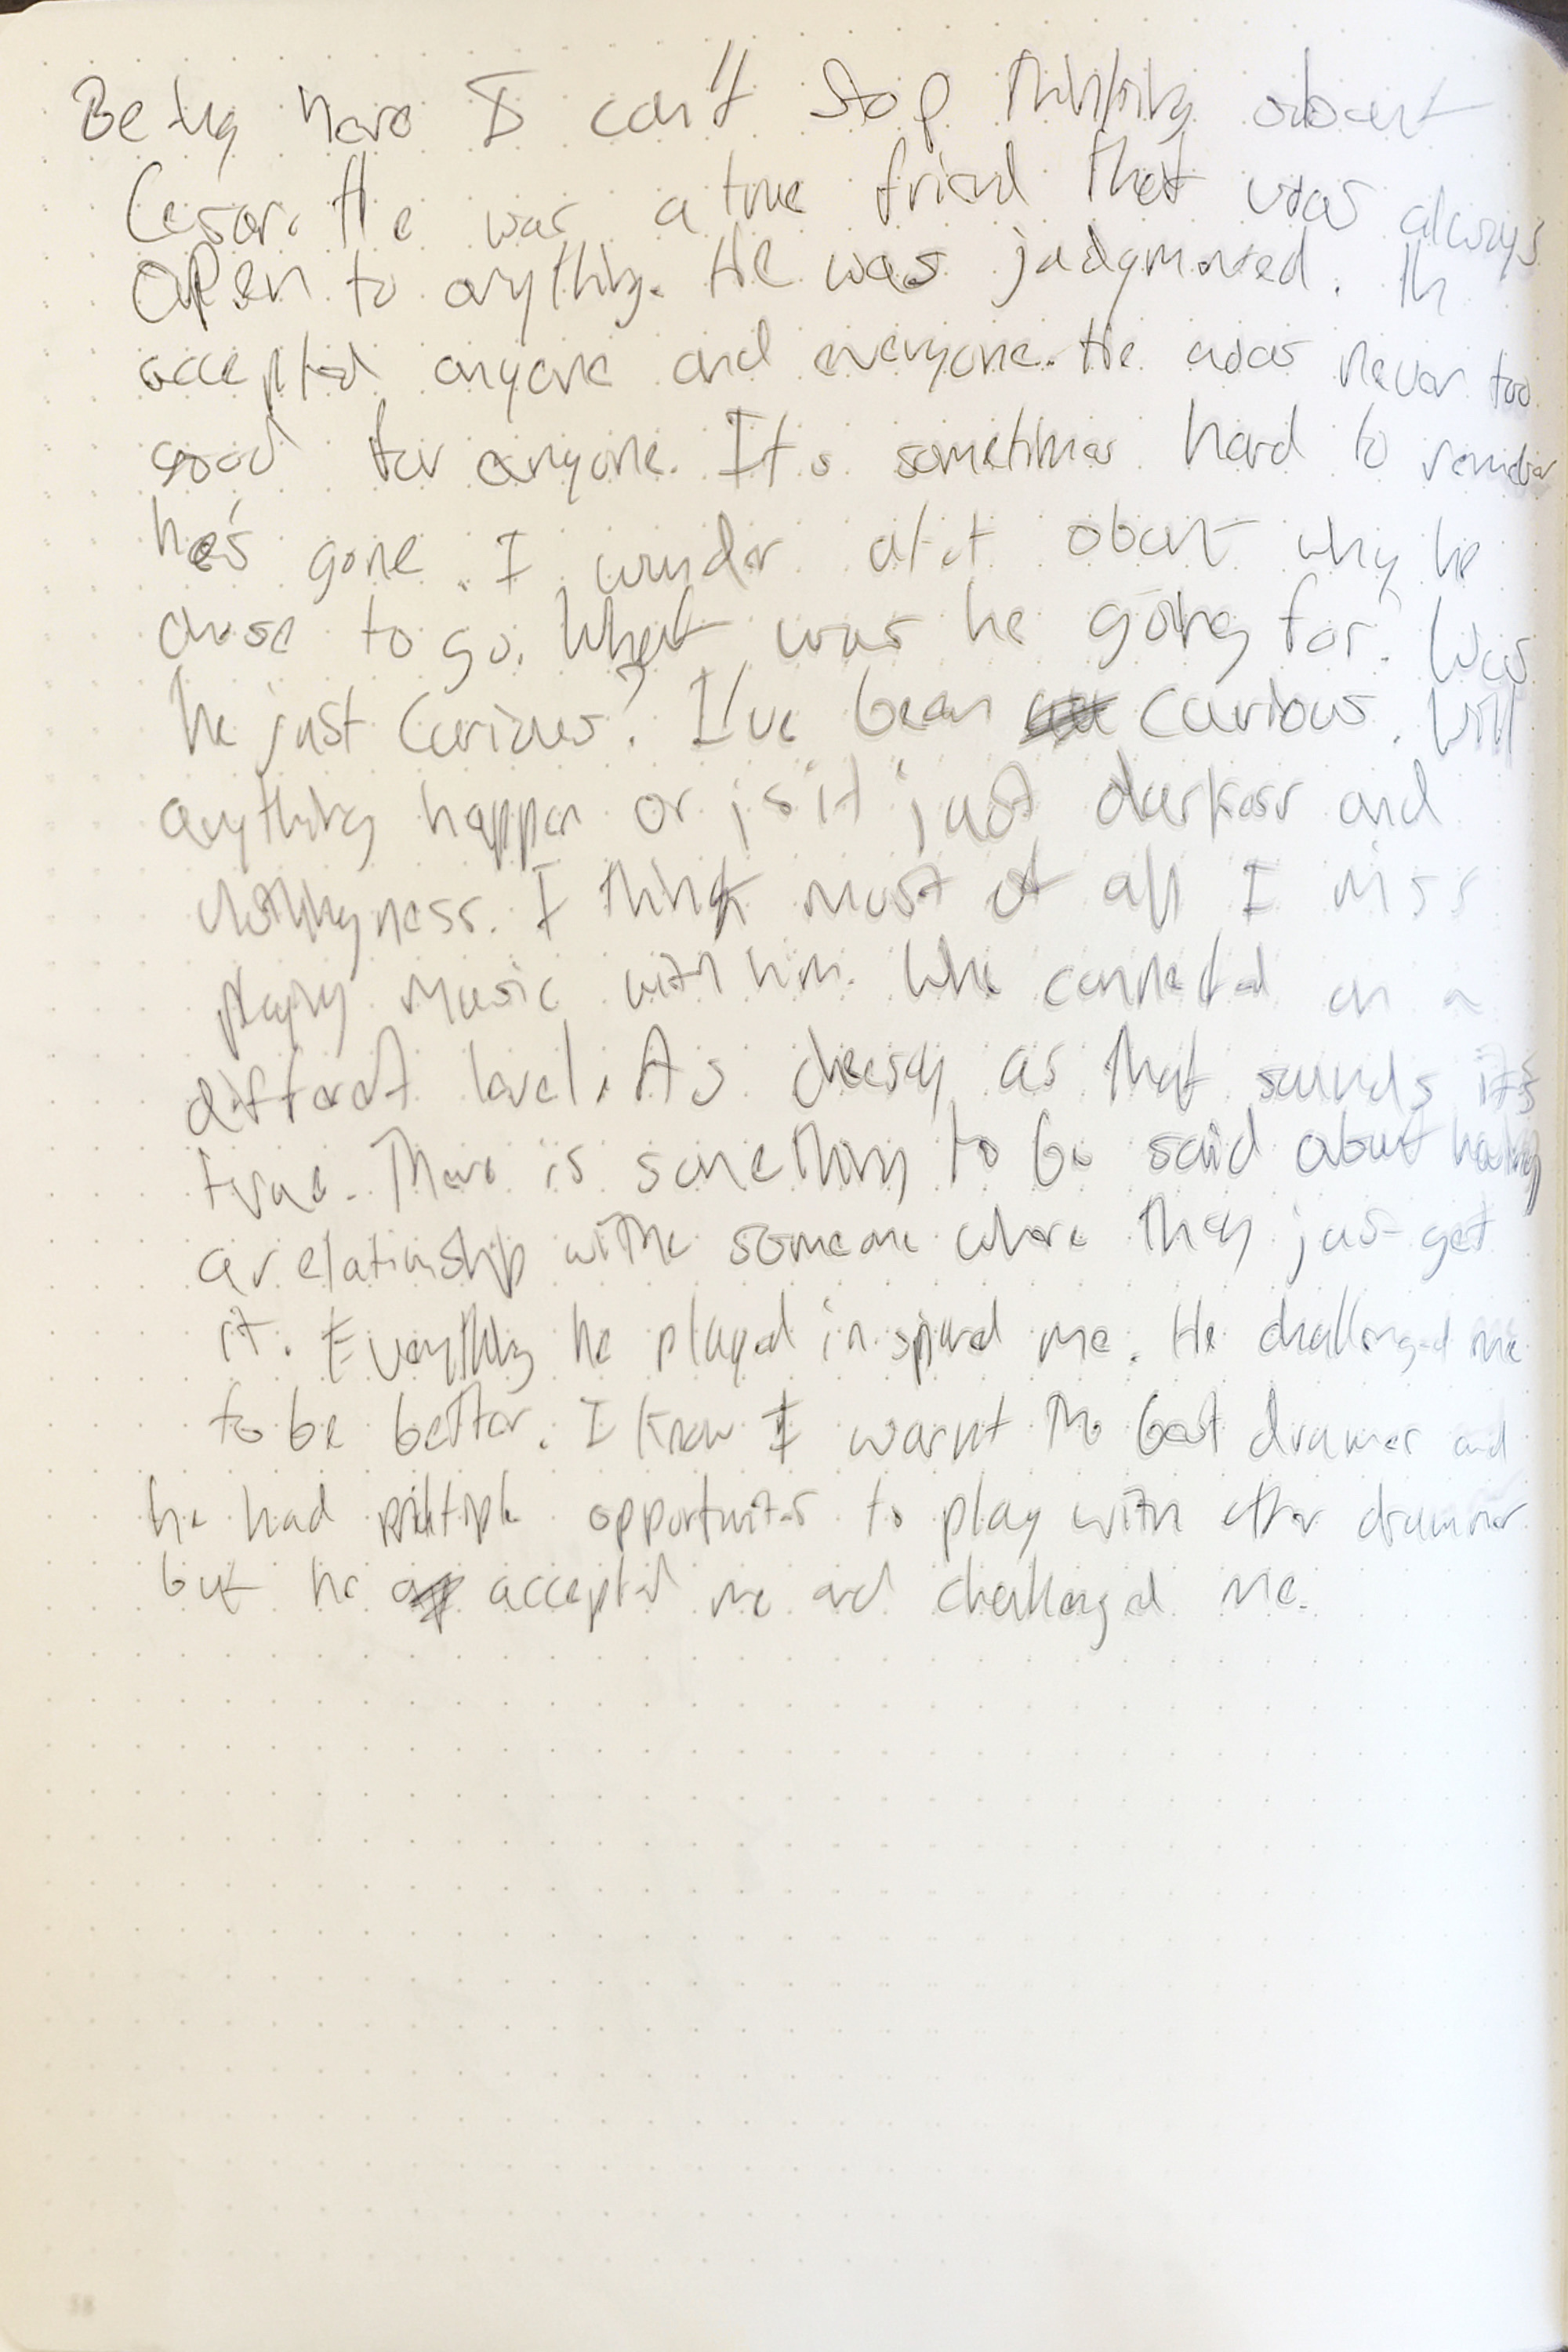 Being here I can't stop thinking about
Cesar. He was a true friend that was always
open to anything. He was judgmented. He
accepted anyone and everyone. He was never too
good for anyone. It's sometimes hard to remember
he's gone. I wonder alot about why he
chose to go. What was he going for? Was
he just curious? I've been curious. Will
anything happen or is it just darkness and
nothingness. I think most of all I miss
playing music with him. We connected on a
different level. As cheesy as that sounds it's
true. There is something to be said about having
a relationship withe someone where they just get
it. Everything he played inspired me. He challenged me
to be better. I know I wasn't the best drummer and
he had multiple opportunities to play with other drummer
but he accepted me and challenged me.